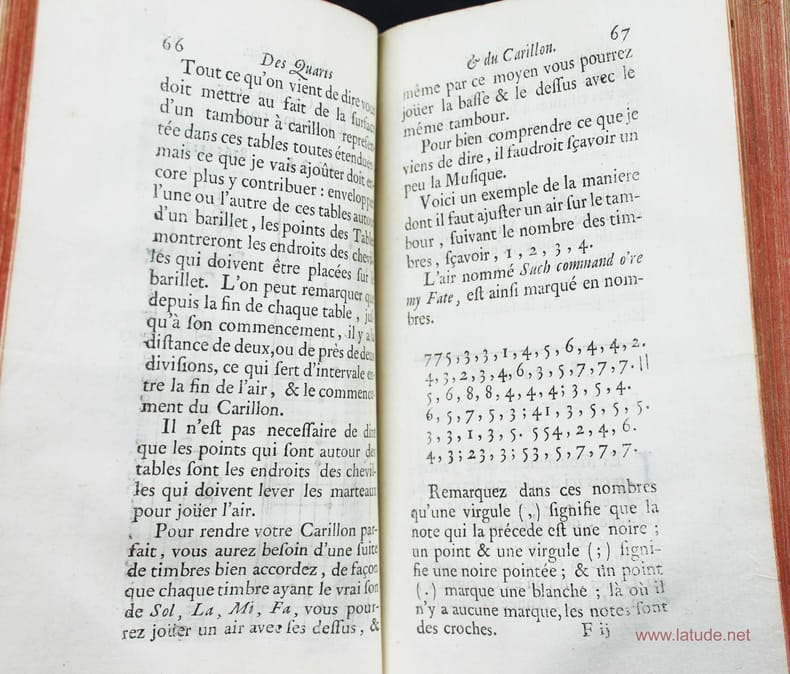 66
Des Quarts
Tout ce qu'on vient de dire vous
doit mettre au fait de la surface
d'un tambour à carillon représen-
tée dans ces tables toutes étenduës
mais ce que je vais ajoûter doit en-
core plus y contribuer : enveloppez
l'une ou l'autre de ces tables autour
d'un barillet, les points des Tables
montreront les endroits des chevil-
les qui doivent être placées sur le
barillet. L'on peut remarquer que
depuis la fin de chaque table, jus-
qu'à son commencement, il y a la
distance de deux, ou de près de deux
divisions, ce qui sert d'intervale en-
tre la fin de l'air, & le commence-
ment du Carillon.
Il n'est pas necessaire de dire
que les points qui sont autour des
tables sont les endroits des chevil-
les qui doivent lever les marteaux
pour joüer l'air.
Pour rendre votre Carillon par-
fait, vous aurez besoin d'une suite
de timbres bien accordez, de façon
que chaque timbre ayant le vrai son
de Sol, La, Mi, Fa, vous pour-
rez joüer un air avec ses dessus, &
67
& du Carillon.
même par ce moyen vous pourrez
joüer la basse & le dessus avec le
même tambour.
Pour bien comprendre ce que je
viens de dire, il faudroit sçavoir un
peu la Musique.
Voici un exemple de la maniere
dont il faut ajuster un air sur le tam-
bour, suivant le nombre des tim-
bres, sçavoir, 1, 2, 3, 4.
L'air nommé Such command o're
my Fate, est ainsi marqué en nom-
bres.
775,3,3,1,4,5,6,4,4,2.
4,3,2,3,4,6,3,5,7,7,7.||
5,6,8,8,4,4,4;3,5,4.
6,5,7,5,3;41,3,5,5,5.
3,3,1,3,5. 554,2,4,6.
4,3;23,3;53,5,7,7,7.
Remarquez dans ces nombres
qu'une virgule (,) signifie que la
note qui la précede est une noire ;
un point & une virgule (;) signi-
fie une noire pointée ; & un point
(.) marque une blanche ; là où il
n'y a aucune marque, les notes sont
des croches.
F ij
www.latude.net